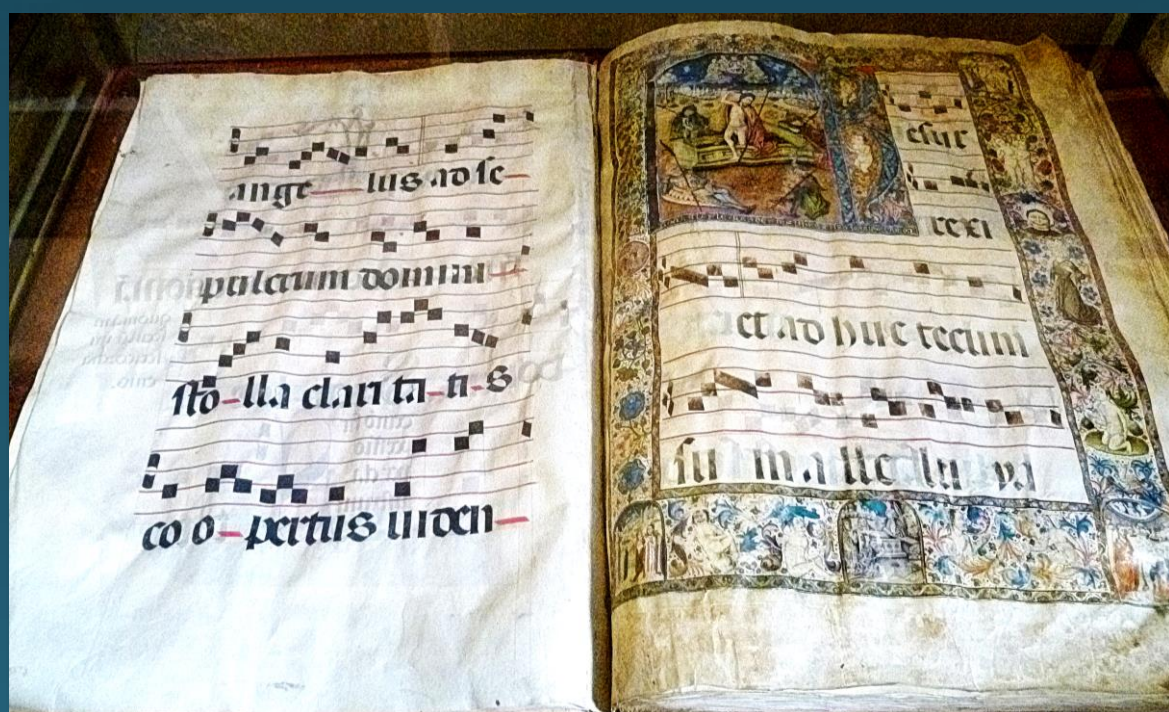 ange lus ad se
pulcrum domini
sto lla clari ta ti s
co o pertus viden
esur
rexi
et ad huc tecum
su m a lle lu ya